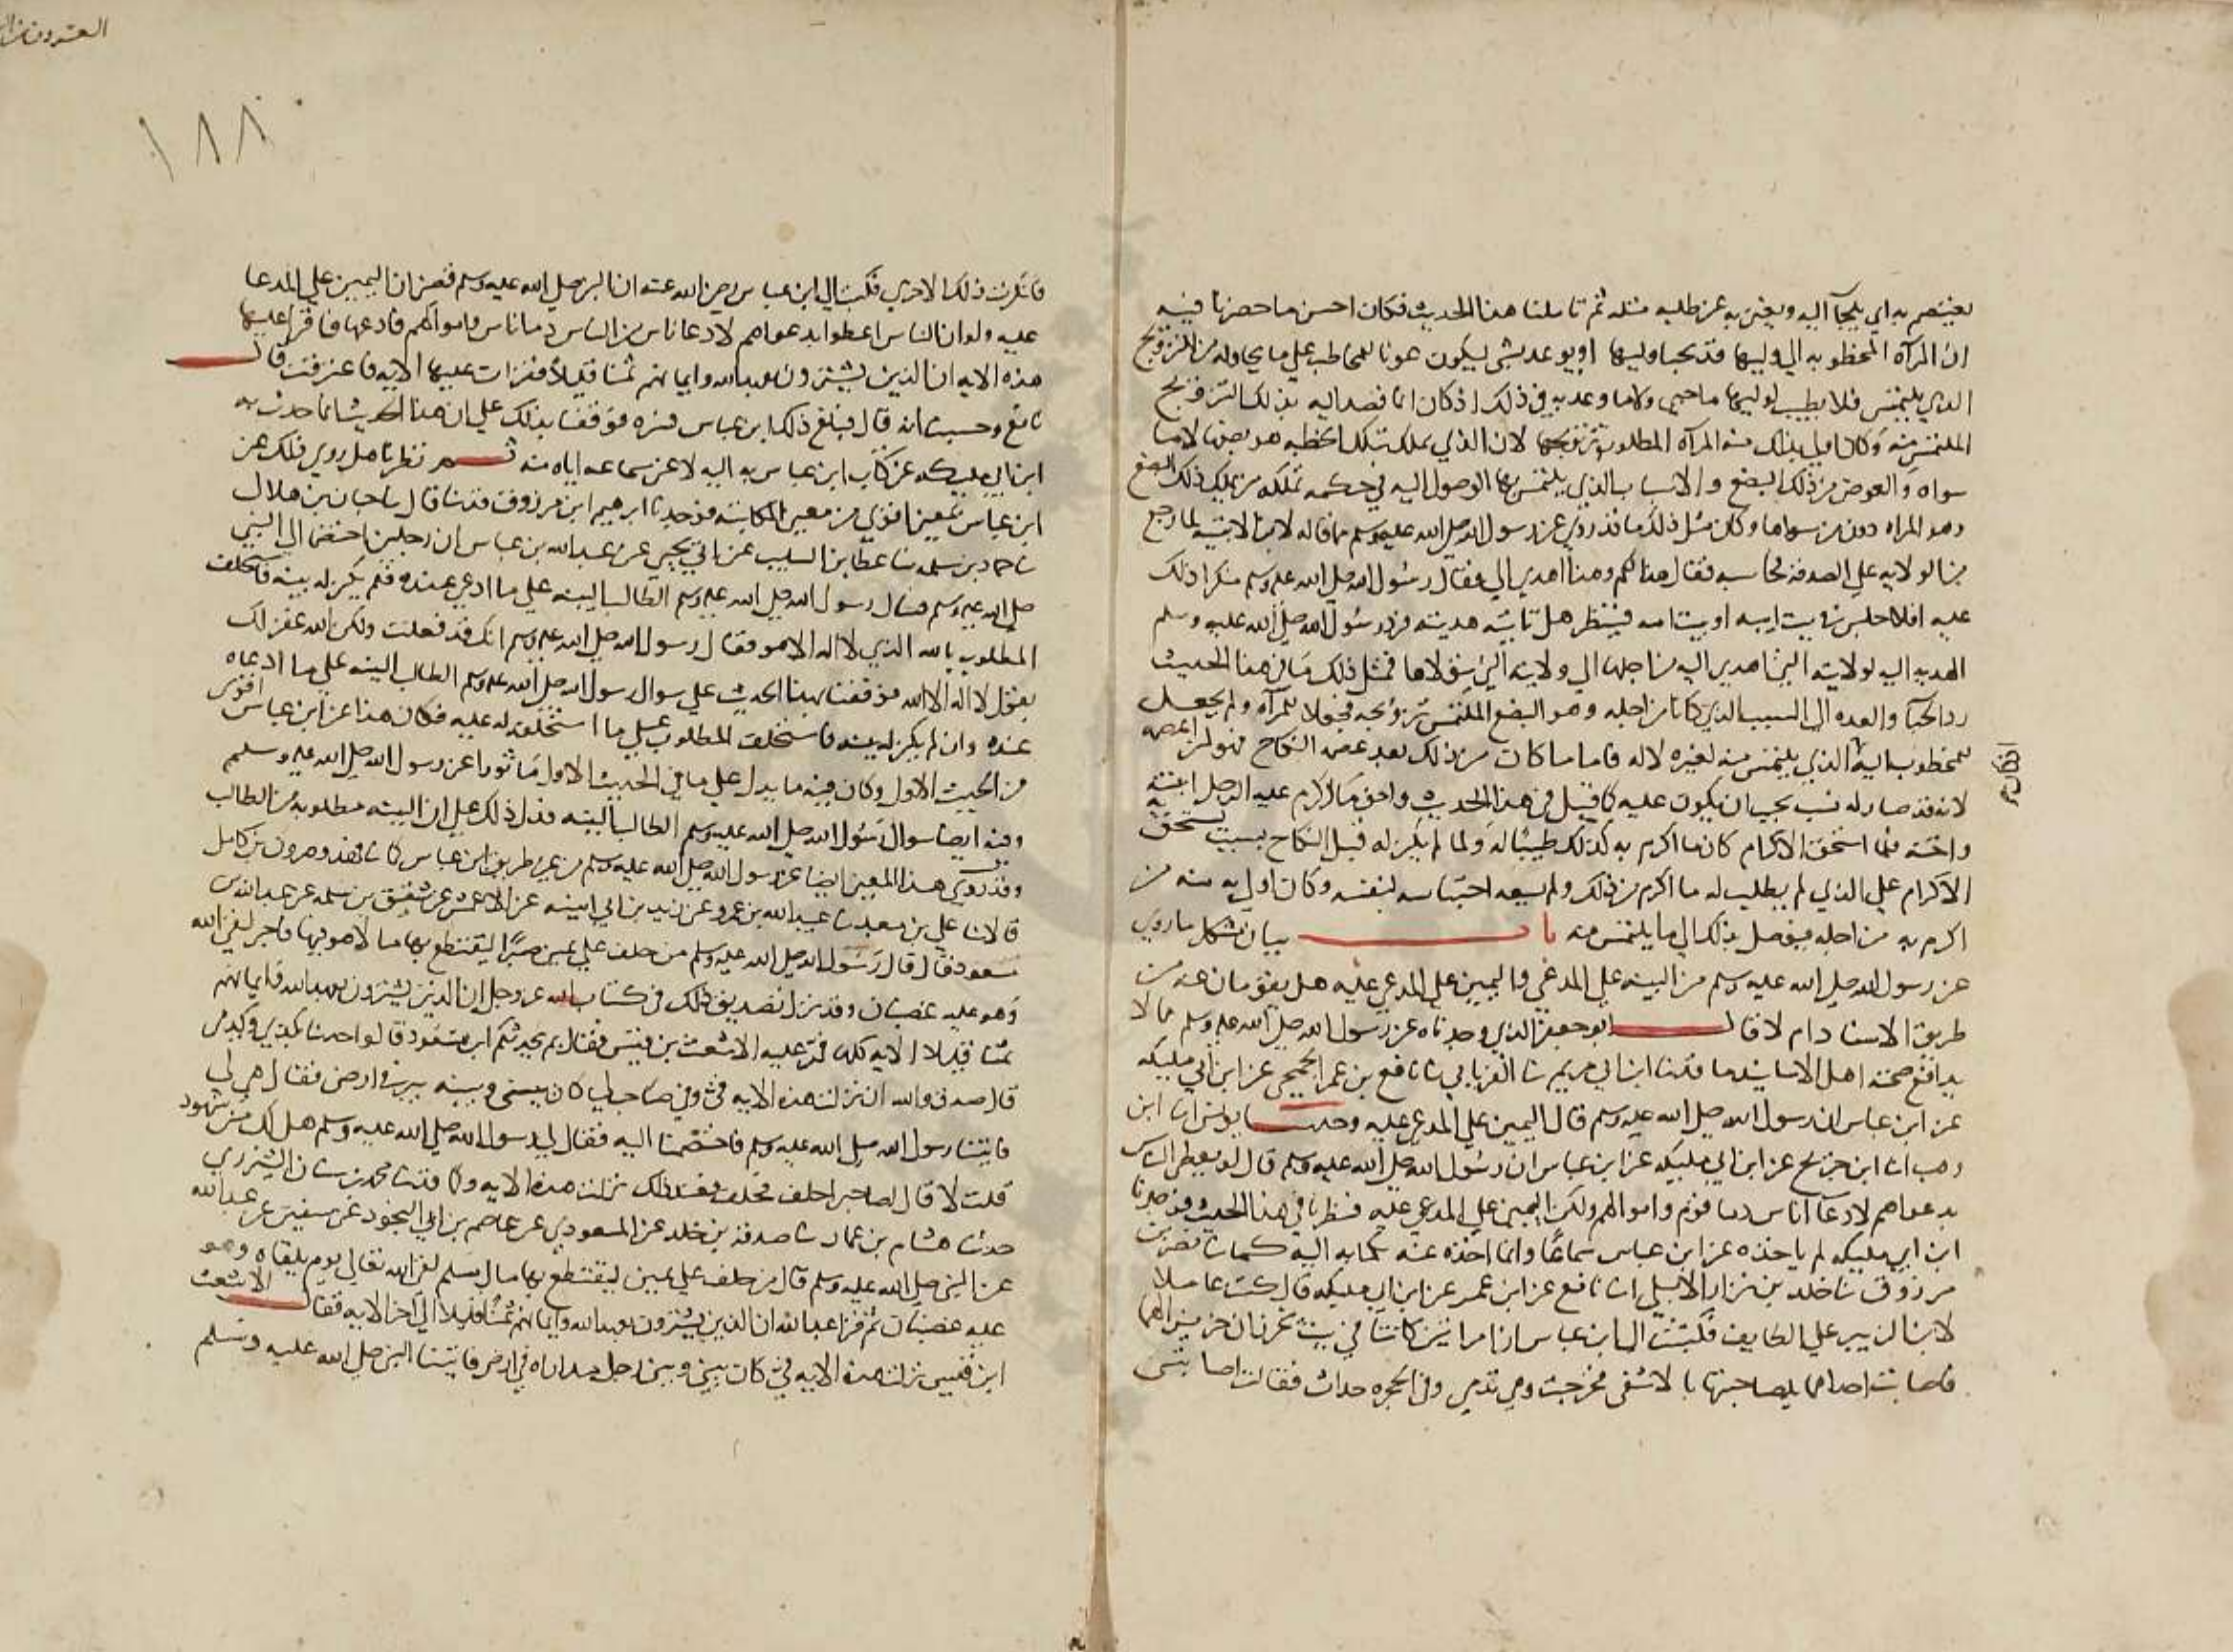 يعتصم به اي يلجا اليه ويغتر به عن طلبه مثله ثم تاملنا هذا الحديث فكان احسن ما حضرنا فيه
ان المرآه المخطوبه الي وليها قد يحبا وليها او يوعد بشي ليكون عونا للخاطب علي ما يحاوله من التزويج
الذي يلتمس فلا يطيب لوليها ما حبي ولا ما وعد به في ذلك اذ كان انما قصد اليه بذلك التزويج
الملتمس منه وكان اولي بذلك منه المرآه المطلوب تزويجها لان الذي يملك بتلك الخطبه هو بضعها لا ما
سواه والعوض من ذلك البضع والاسباب الذي يلتمس بها الوصول اليه في حكمه تملكه من يملك ذلك البضع
وهو المراه دون من سواها وكان مثل ذلك ما قد روي عن رسول الله صلي الله عليه وسلم مما قاله لابن اللتبيه لما رجع
من الولايه علي الصدقه فحاسبه فقال هذا لكم وهذا اهدي الي فقال رسول الله صلي الله عليه وسلم منكرا ذلك
عليه افلا جلس في بيت ابيه او بيت امه فينظر هل تاتيه هديته فرد رسول الله صلي الله عليه وسلم
الهديه اليه لولايته التي اهدي اليه من اجلها الي ولايته التي تولاها فمثل ذلك ما في هذا الحديث
رد الحبا والعده الي السبب الذي كانا من اجله وهو البضع الملتمس تزويجه فجعلا للمرآه ولم يجعل
للمخطوب اليه الذي يلتمس منه لغيره لا له فاما ما كان من ذلك بعد عصمه النكاح فهو لمن اعطيه
لانه قد صار له سبب يجب ان يكون عليه كما قيل في هذا الحديث واحق ما اكرم عليه الرجل ابنته
واخته فلما استحق الاكرام كان ما اكرم به كذلك طيبا له ولما لم يكن له قبل النكاح سبب يستحق به
الاكرام علي الذي لم يطلب له ما اكرم من ذلك ولم يسعه احتباسه لنفسه وكان اولي به منه من
اكرم به من اجله فيوصل بذلك الي ما يلتمس منه باب بيان مشكل ما روي
عن رسول الله صلي الله عليه وسلم من البينه علي المدعي واليمين علي المدعي عليه هل يقومان عنه من
طريق الاسناد ام لا قال ابو جعفر الذي وجدناه عن رسول الله صلي الله عليه وسلم مما لا
يدافع صحته اهل الاسانيد ما قد حدثنا ابن ابي مريم نا الفريابي نا نافع بن عمر الجمحي عن ابن ابي مليكه
عن ابن عباس ان رسول الله صلي الله عليه وسلم قال اليمين علي المدعي عليه وحدثنا يونس انا ابن
وهب انا ابن جريج عن ابن ابي مليكه عن ابن عباس ان رسول الله صلي الله عليه وسلم قال لو يعطي الناس
بدعواهم لادعا اناس دما قوم واموالهم ولكن اليمين علي المدعي عليه فنظرنا في هذا الحديث فوجدنا
ابن ابي مليكه لم ياخذه عن ابن عباس سماعا وانما اخذه عنه بكتابه اليه كما نا نصر بن
مرزوق نا خلد بن نزار الايلي انا نافع عن ابن عمر عن ابن ابي مليكه قال كنت عاملا
لابن الزبير علي الطايف فكتبت الي ابن عباس ان امراتين كانتا في بيت تخرزان حريرا لهما
فاصابت احداهما يد صاحبتها بالاشفي فخرجت وهي تدمي وفي الحجره حداث فقالت اصابتني
اكرم
العشرون من
١٨٨
فانكرت ذلك الاخري فكتب الي ابن عباس رضي الله عنه ان النبي صلي الله عليه وسلم قضي ان اليمين علي المدعا
عليه ولو ان الناس اعطوا بدعواهم لادعا ناس من الناس دما ناس واموالهم فادعها فاقرا عليها
هذه الايه ان الذين يشترون بعهد الله وايمانهم ثمنا قليلا فقرات عليها الايه فاعترفت قال
نافع وحسبت انه قال فبلغ ذلك ابن عباس فسره فوقفنا بذلك علي ان هذا الحديث انما حدث به
ابن ابي مليكه عن كتاب ابن عباس به اليه لا عن سماعه اياه منه ثم نظرنا هل روي ذلك عن
ابن عباس بمعين اقوي من معين المكاتبه فوجدنا ابرهيم ابن مرزوق قد حدثنا قال نا حبان بن هلال
نا حماد بن سلمه نا عطا بن السايب عن ابي يحيي عن عبد الله بن عباس ان رجلين اختصما الي النبي
صلي الله عليه وسلم فسال رسول الله صلي الله عليه وسلم الطالب البينه علي ما ادعي عنده فلم يكن له بينه فاستحلف
المطلوب بالله الذي لا اله الا هو فقال رسول الله صلي الله عليه وسلم انك قد فعلت ولكن الله غفر لك
بقول لا اله الا الله فوقفنا بهذا الحديث علي سوال رسول الله صلي الله عليه وسلم الطالب البينه علي ما ادعاه
عنده وان لم يكن له بينه فاستحلف المطلوب علي ما استحلف له عليه فكان هذا عن ابن عباس اقوي
من الحديث الاول وكان فيه ما يدل علي ما في الحديث الاول ماثورا عن رسول الله صلي الله عليه وسلم
وفيه ايضا سوال رسول الله صلي الله عليه وسلم الطالب البينه فدل ذلك علي ان البينه مطلوبه من الطالب
وقد روي هذا المعين ايضا عن رسول الله صلي الله عليه وسلم من غير طريق ابن عباس كما نا فهد وهرون بن كامل
قالا نا علي بن معبد نا عبيد الله بن عمرو عن زيد بن ابي انيسه عن الاعمش عن شقيق بن سلمه عن عبد الله بن
مسعود قال قال رسول الله صلي الله عليه وسلم من حلف علي يمين صبرا ليقتطع بها مالا هو فيها فاجر لقي الله
وهو عليه غضبان وقد نزل تصديق ذلك في كتاب الله عز وجل ان الذين يشترون بعهد الله وايمانهم
ثمنا قليلا الايه كلها فمر عليه الاشعث بن قيس فقال بم يحدثكم ابن مسعود قالوا حدثنا بكذي وكذي
قال صدق والله ان نزلت هذه الايه في وفي صاحب لي كان بيني وبينه بير في ارض فقال هي لي
فاتينا رسول الله صلي الله عليه وسلم فاختصمنا اليه فقال لي رسول الله صلي الله عليه وسلم هل لك من شهود
قلت لا قال لصاحبي احلف فحلف فعند ذلك نزلت هذه الايه وكما قد حدثنا محمد بن سنان الشيزري
حدثنا هشام بن عمار نا صدقه بن خلد عن المسعودي عن عاصم بن ابي النجود عن شقيق عن عبد الله
عن النبي صلي الله عليه وسلم قال من حلف علي يمين ليقتطع بها مال مسلم لقي الله تعالي يوم يلقاه وهو
عليه غضبان ثم قرا عبد الله ان الذين يشترون بعهد الله وايمانهم ثمنا قليلا الي آخر الايه فقال الاشعث
ابن قيس نزلت هذه الايه في كان بيني وبين رجل مداراه في ارض فاتينا النبي صلي الله عليه وسلم